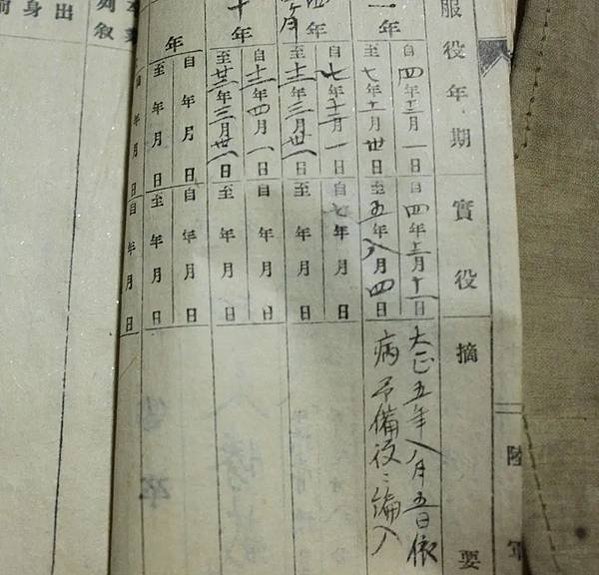 服役年期
實役
摘要
陸軍
自四年十二月一日
至七年十一月卅日
自四年十二月十一日
至五年八月四日
大正五年八月五日依
病予備役ニ編入
一年
自七年十二月一日
至十三年三月卅一日
自七年月日
至年月日
年
自十三年四月一日
至廿三年三月卅一日
自年月日
至年月日
十年
自年月日
至年月日
自年月日
至年月日
年
年月日
自年月日
出身前
列敘